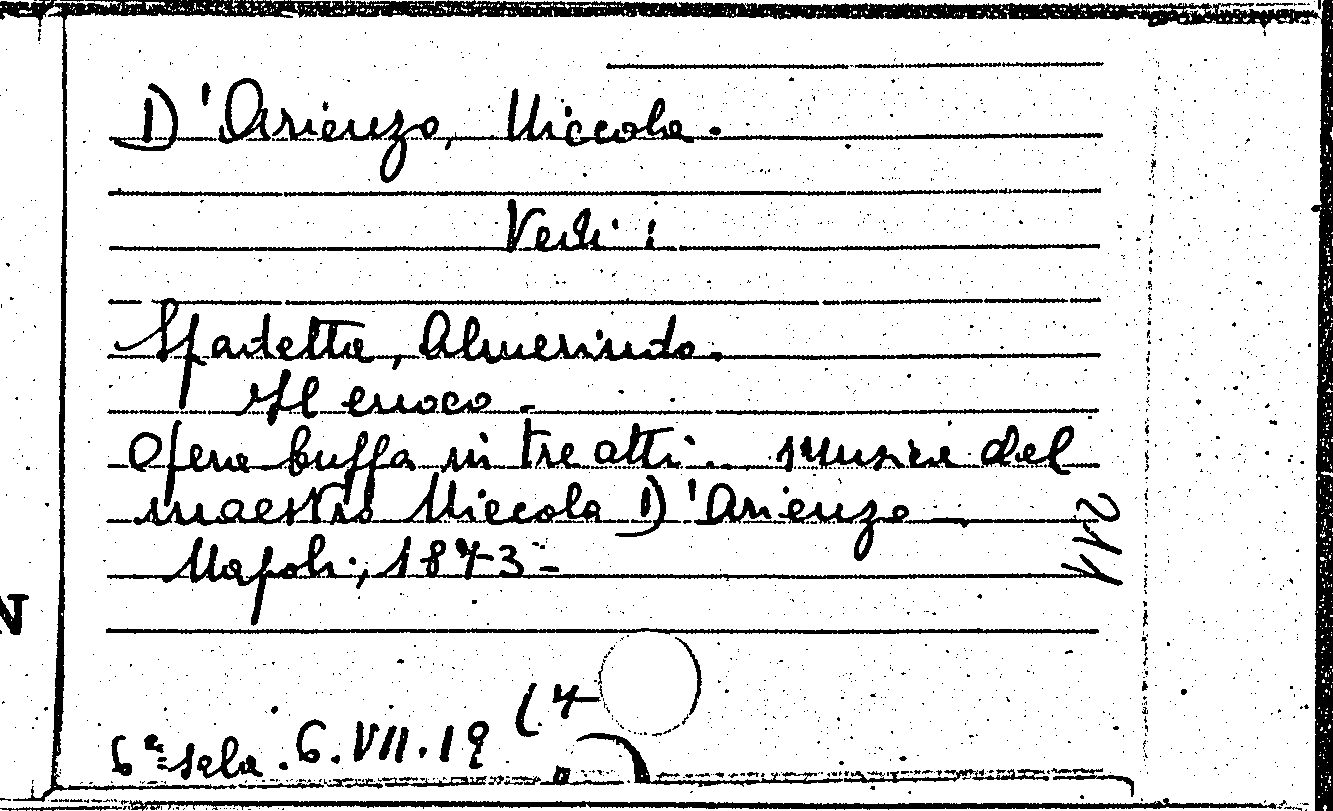 D'Arienzo, Niccola.
Vedi:
Spadetta, Almerindo.
Il cuoco.
Opera buffa in tre atti. musica del
maestro Niccola D'Arienzo
Napoli, 1873 -
6ª sala. 6.VII.19 (7